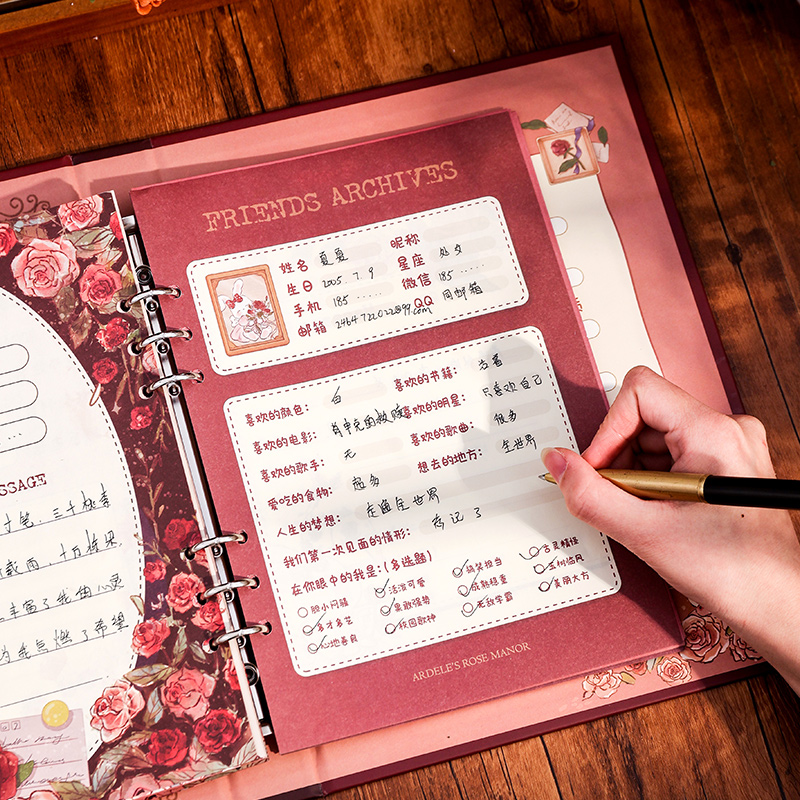 SSAGE
寸笔,三千桃李
载雨,十万栋梁
丰富了我的心灵
为我点燃了希望
FRIENDS ARCHIVES
姓名 夏夏 昵称
生日 2005.7.9 星座 处女
手机 185 ..... 微信 185 .....
邮箱 QQ 同邮箱
喜欢的颜色: 白 喜欢的书籍: 活着
喜欢的电影: 肖申克的救赎 喜欢的明星: 只喜欢自己
喜欢的歌手: 无 喜欢的歌曲: 很多
爱吃的食物: 超多 想去的地方: 全世界
人生的梦想: 走遍全世界
我们第一次见面的情形: 忘记了
在你眼中的我是:(多选题)
胆小闷骚 活泼可爱 搞笑担当 古灵精怪
多才多艺 果敢强势 成熟稳重 玉树临风
心地善良 校园歌神 无敌学霸 美丽大方
ARDELE'S ROSE MANOR